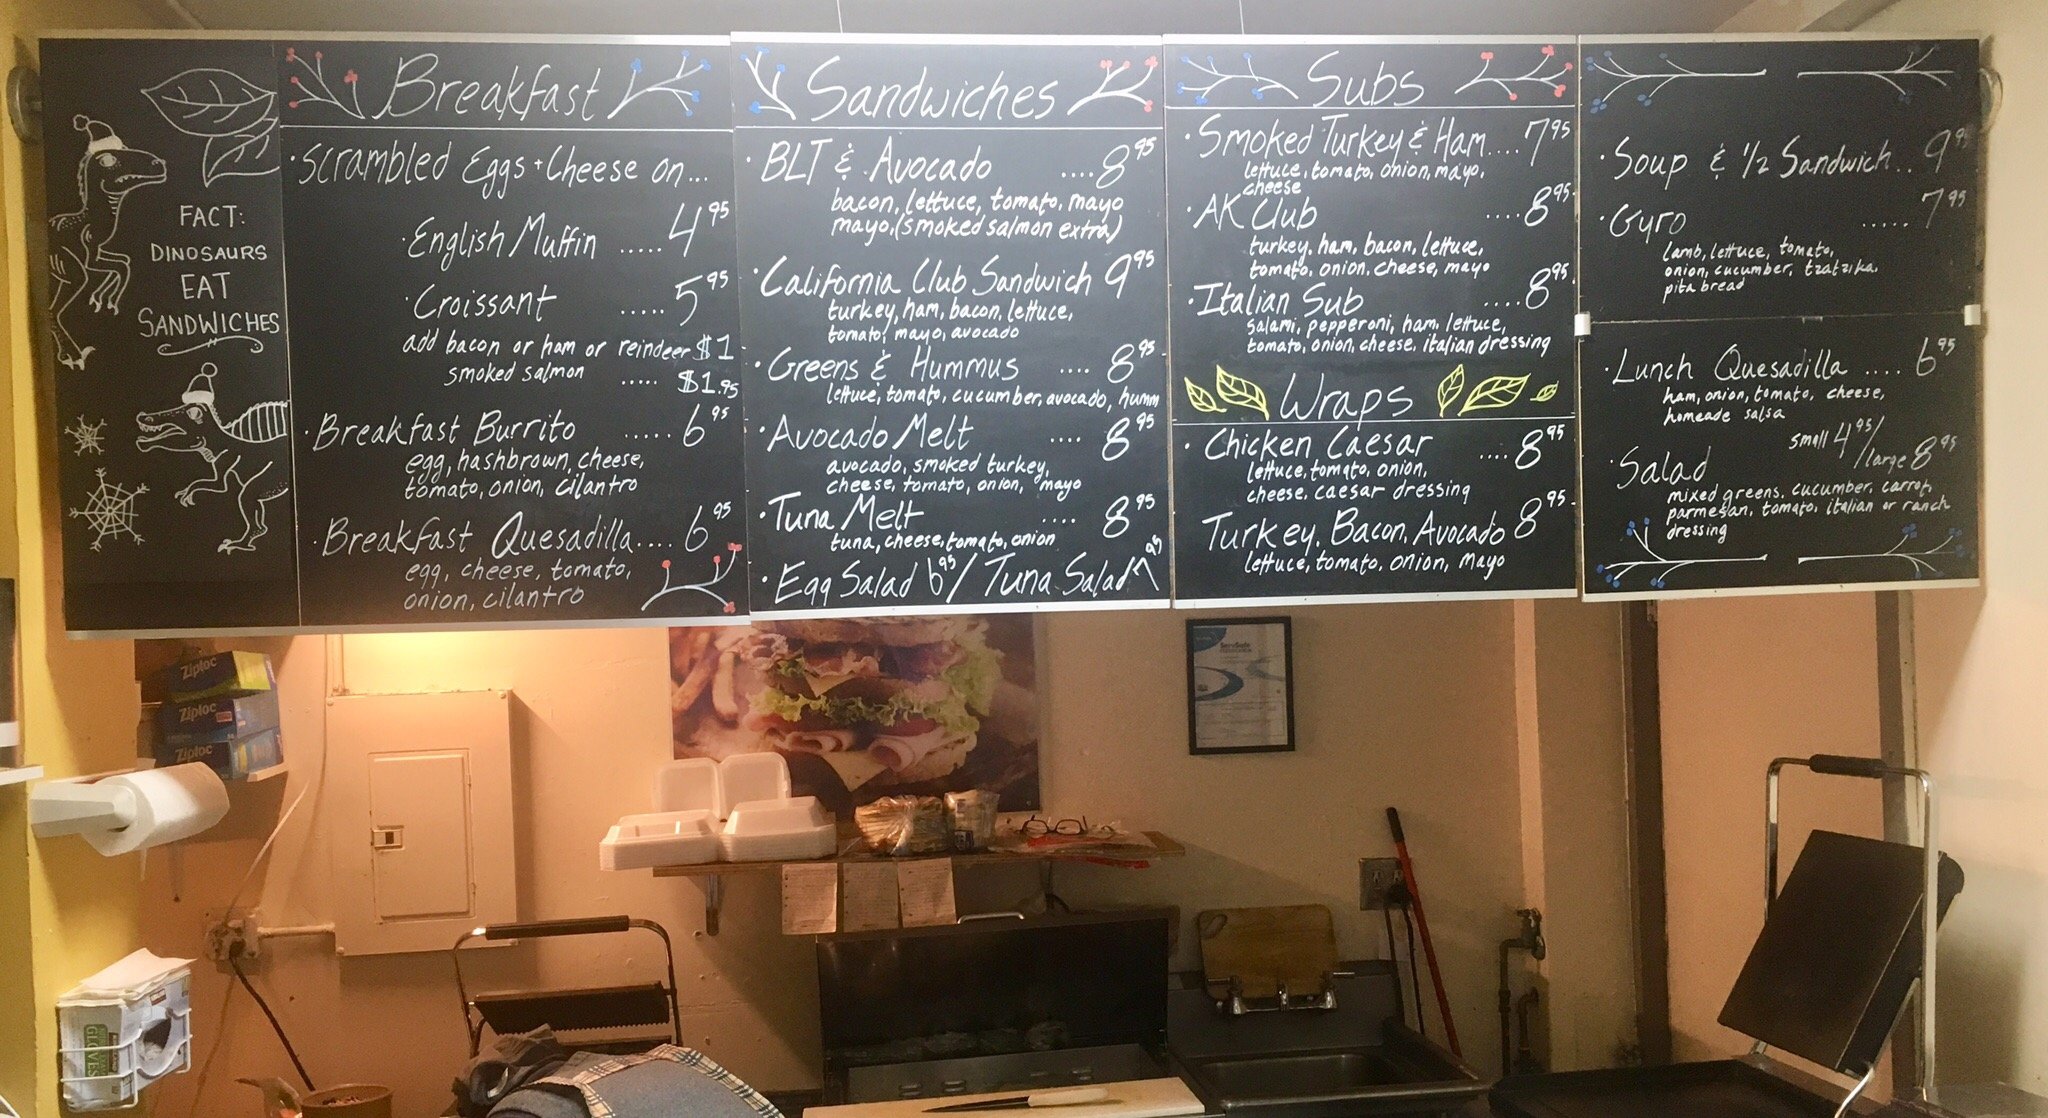 FACT:
DINOSAURS
EAT
SANDWICHES
Breakfast
· Scrambled Eggs + Cheese on...
· English Muffin ..... 4 95
· Croissant ..... 5 95
add bacon or ham or reindeer $1
smoked salmon ..... $1.95
· Breakfast Burrito ..... 6 95
egg, hashbrown, cheese,
tomato, onion, cilantro
· Breakfast Quesadilla.... 6 95
egg, cheese, tomato,
onion, cilantro
Sandwiches
· BLT & Avocado .... 8 95
bacon, lettuce, tomato, mayo
mayo, (smoked salmon extra)
· California Club Sandwich 9 95
turkey, ham, bacon, lettuce,
tomato, mayo, avocado
· Greens & Hummus .... 8 95
lettuce, tomato, cucumber, avocado, humm
· Avocado Melt .... 8 95
avocado, smoked turkey,
cheese, tomato, onion, mayo
· Tuna Melt .... 8 95
tuna, cheese, tomato, onion
· Egg Salad 6 95 / Tuna Salad 7 95
Subs
· Smoked Turkey & Ham.... 7 95
lettuce, tomato, onion, mayo,
cheese
· AK Club .... 8 95
turkey, ham, bacon, lettuce,
tomato, onion, cheese, mayo
· Italian Sub .... 8 95
salami, pepperoni, ham, lettuce,
tomato, onion, cheese, italian dressing
Wraps
· Chicken Caesar .... 8 95
lettuce, tomato, onion,
cheese, caesar dressing
Turkey, Bacon, Avocado 8 95
lettuce, tomato, onion, mayo
· Soup & 1/2 Sandwich.. 9 95
· Gyro ..... 7 95
lamb, lettuce, tomato,
onion, cucumber, tzatzika,
pita bread
· Lunch Quesadilla .... 6 95
ham, onion, tomato, cheese,
homeade salsa
· Salad small 4 95 / large 8 95
mixed greens, cucumber, carrot,
parmesan, tomato, italian or ranch
dressing
Ziploc
Ziploc
Ziploc
ServSafe
GLOVES